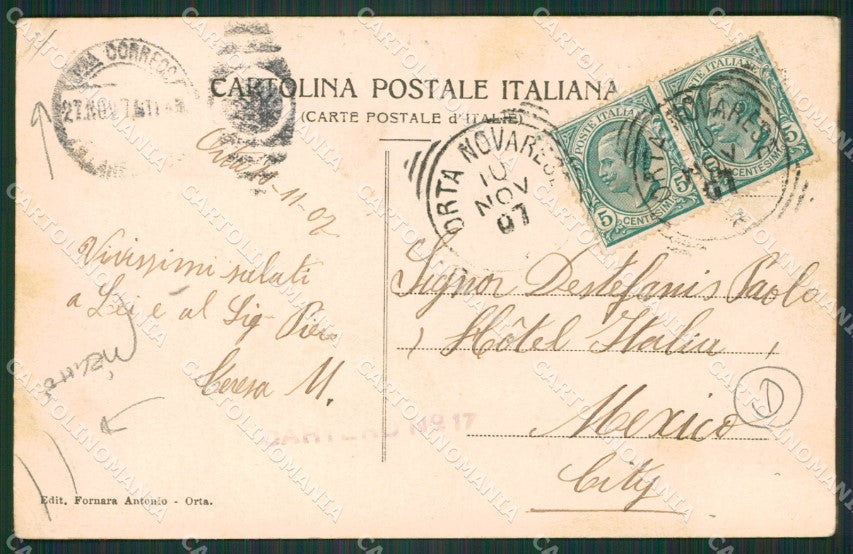 CARTOLINA POSTALE ITALIANA
(CARTE POSTALE d'ITALIE)
27.NOV
POSTE ITALIANE
5 5
CENTESIMI
POSTE ITALIANE
5
CENTESIMI
ORTA NOVARESE
10
NOV
07
ORTA NOVARESE
NOV
07
11-07
Vivissimi saluti
a Lei e al Sig. Piero
Teresa M.
Signor Destefanis Paolo
Hôtel Italia
Mexico
City
CARTERO No. 17
D
Edit. Fornara Antonio - Orta.
CARTOLINOMANIA